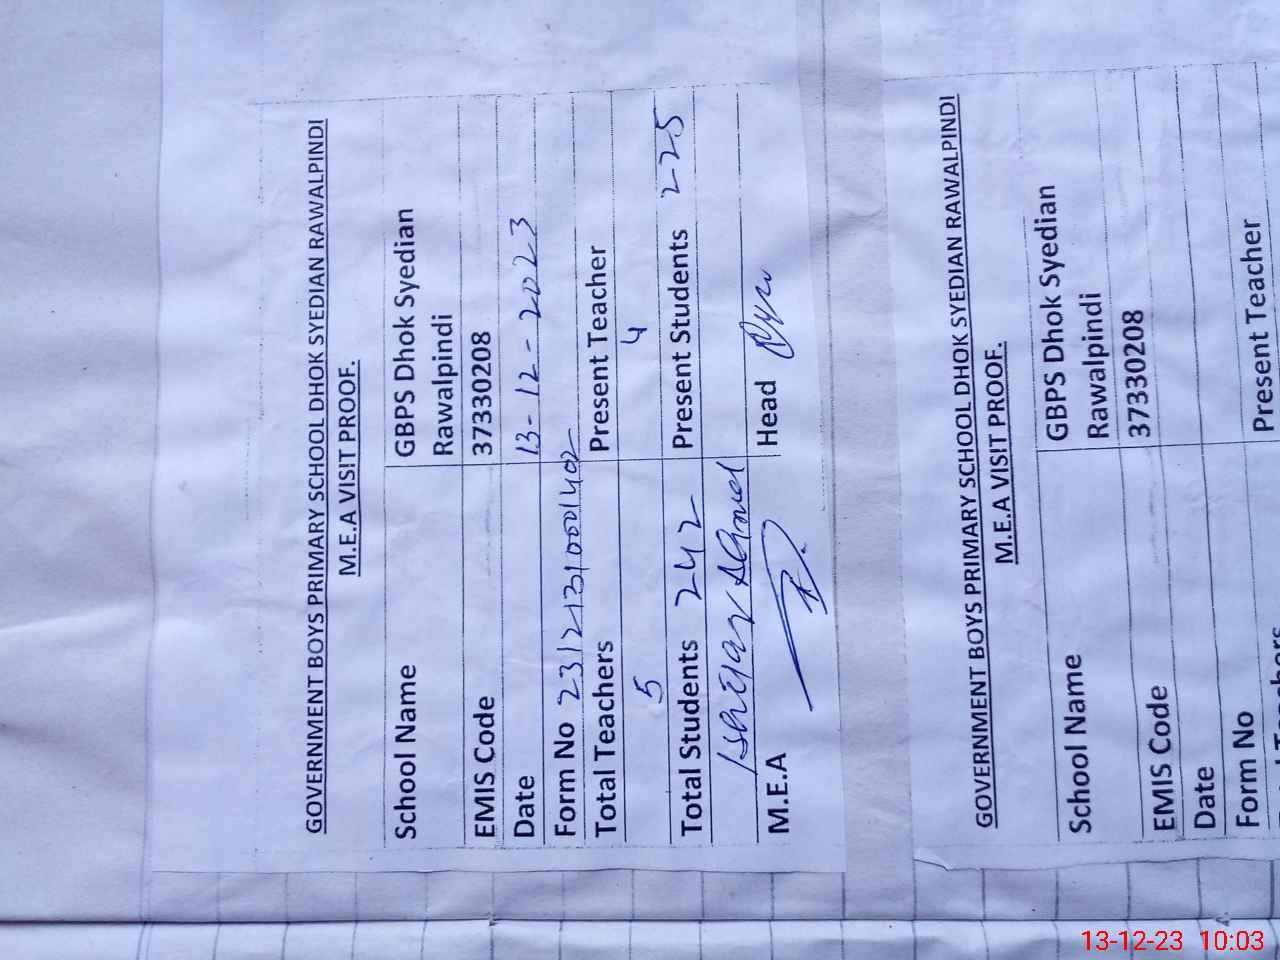 GOVERNMENT BOYS PRIMARY SCHOOL DHOK SYEDIAN RAWALPINDI
M.E.A VISIT PROOF.
School Name GBPS Dhok Syedian
Rawalpindi
EMIS Code 37330208
Date 13-12-2023
Form No
Total Teachers Present Teacher
5 4
Total Students 242 Present Students 225
M.E.A Head
GOVERNMENT BOYS PRIMARY SCHOOL DHOK SYEDIAN RAWALPINDI
M.E.A VISIT PROOF.
School Name GBPS Dhok Syedian
Rawalpindi
EMIS Code 37330208
Date
Form No
Present Teacher
13-12-23 10:03